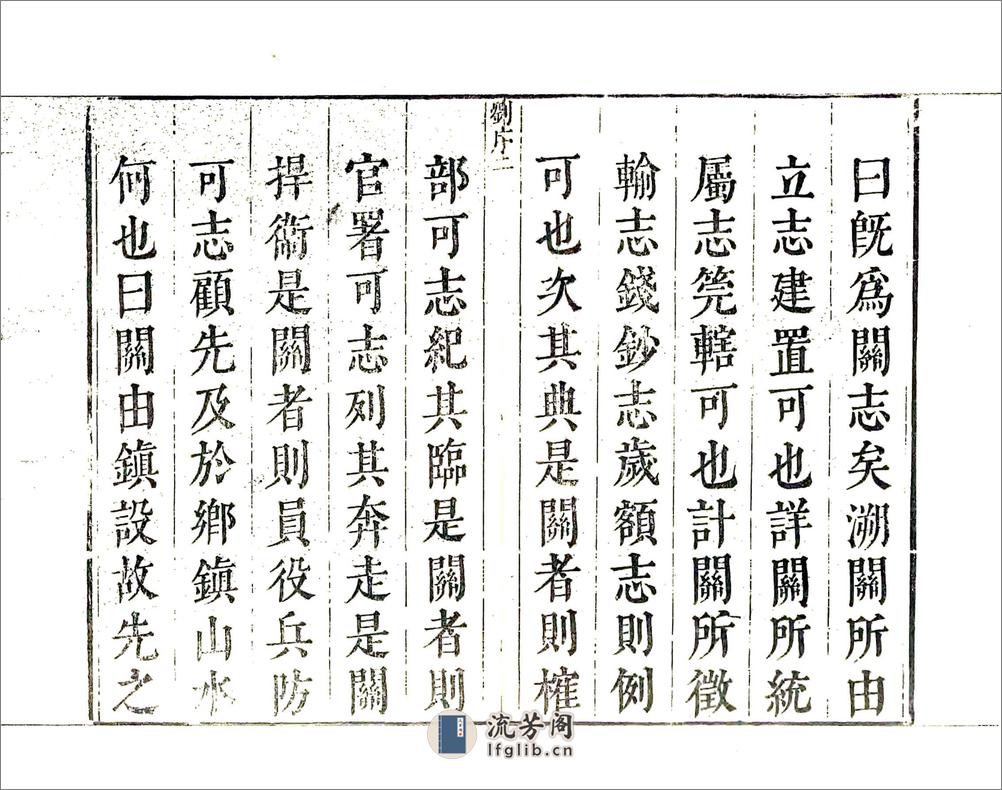 曰旣爲關志矣溯關所由
立志建置可也詳關所統
屬志筦轄可也計關所徵
輸志錢鈔志歲額志則例
可也次其典是關者則榷
劉序二
部可志紀其臨是關者則
官署可志列其奔走是關
捍衞是關者則員役兵防
可志顧先及於鄉鎭山水
何也曰關由鎭設故先之
流芳阁
lfglib.cn